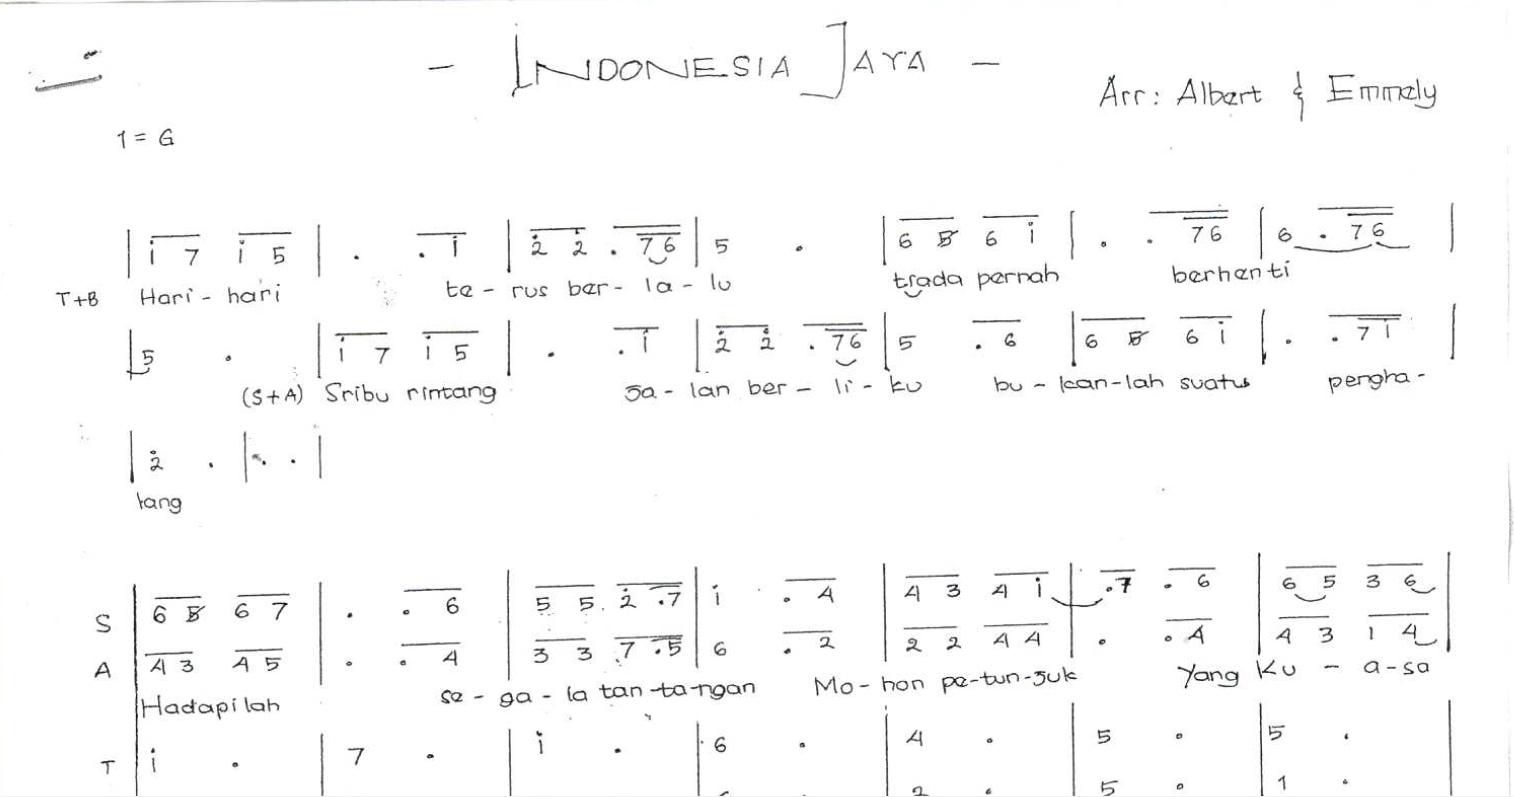 - INDONESIA JAYA -
Arr: Albert & Emmely
1 = G
| i 7 i 5 | . . i | 2̇ 2̇ . 76 | 5 . | 6 5 6 i | . . 76 | 6 . 76 |
T+B Hari - hari te - rus ber - la - lu tjada pernah berhenti
| 5 . | i 7 i 5 | . . i | 2̇ 2̇ . 76 | 5 . 6 | 6 5 6 i | . . 7 i |
(S+A) Sribu rintang Ja - lan ber - li - ku bu - kan-lah suatu pengha -
| 2̇ . | . . |
tang
S | 6 5 6 7 | . . 6 | 5 5 . 2 . 7 | i . 4 | 4 3 4 i | . 7 . 6 | 6 5 3 6 |
A | 4 3 4 5 | . . 4 | 3 3 7 . 5 | 6 . 2 | 2 2 4 4 | . . 4 | 4 3 1 4 |
Hadapi lah se - ga - la tan-ta-ngan Mo-hon pe-tun-juk Yang Ku - a-sa
T | i . | 7 . | i . | 6 . | 4 . | 5 . | 5 . |
2 . 5 . 1 .